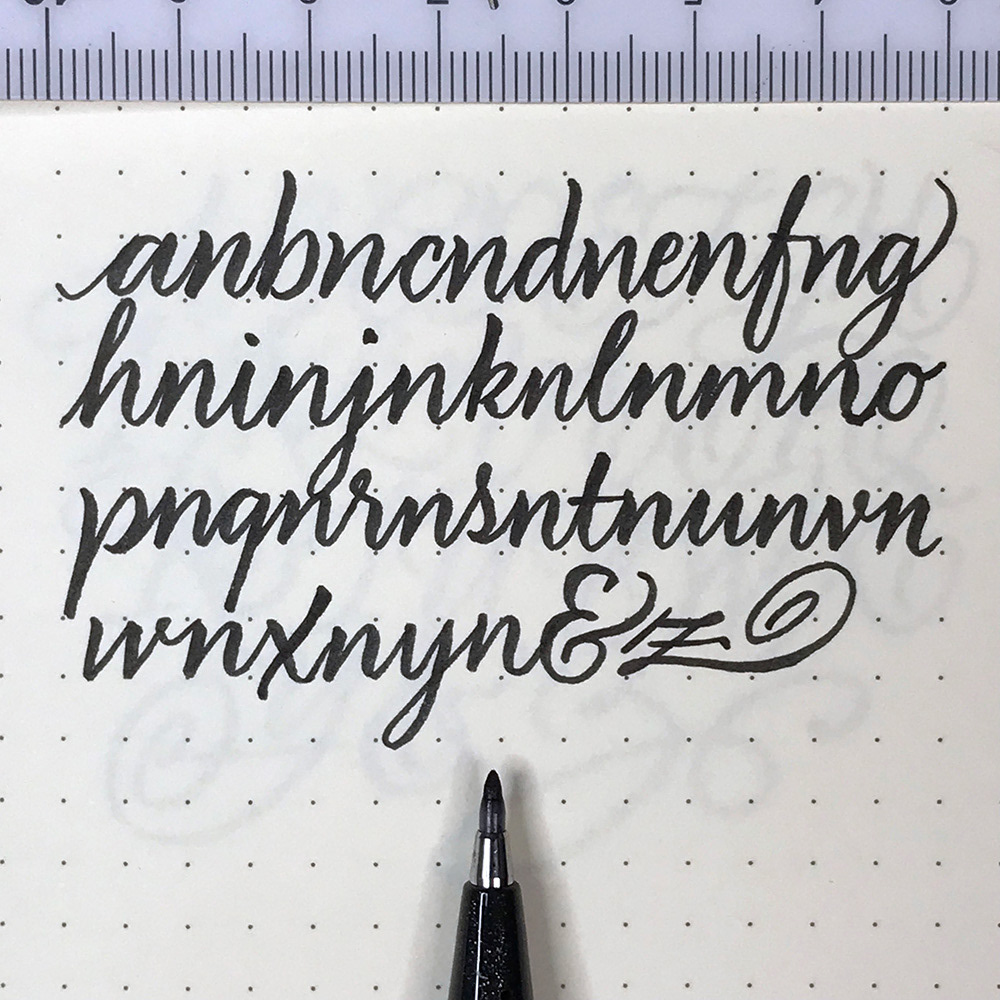 anbncndnenfng
hninjnknlnmno
pnqnrnsntnunvn
wnxnyn&z